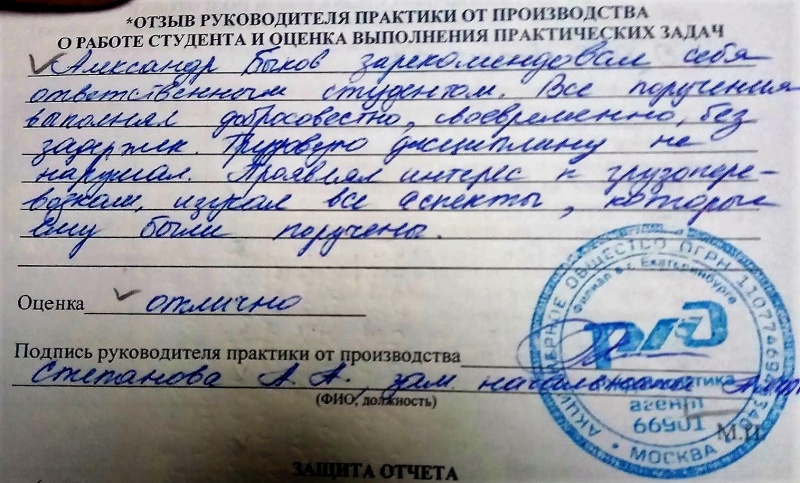 *ОТЗЫВ РУКОВОДИТЕЛЯ ПРАКТИКИ ОТ ПРОИЗВОДСТВА
О РАБОТЕ СТУДЕНТА И ОЦЕНКА ВЫПОЛНЕНИЯ ПРАКТИЧЕСКИХ ЗАДАЧ
Александр Быков зарекомендовал себя
ответственным студентом. Все поручения
выполнял добросовестно, своевременно, без
задержек. Трудовую дисциплину не
нарушал. Проявлял интерес к грузопере-
возкам, изучал все аспекты, которые
ему были поручены.
Оценка отлично
Подпись руководителя практики от производства
Степанова А. А., зам. начальника
(ФИО, должность)
М.П.
АКЦИОНЕРНОЕ ОБЩЕСТВО ОГРН
Филиал в г. Екатеринбурге
РЖД
агент
66901
МОСКВА
ЗАЩИТА ОТЧЕТА